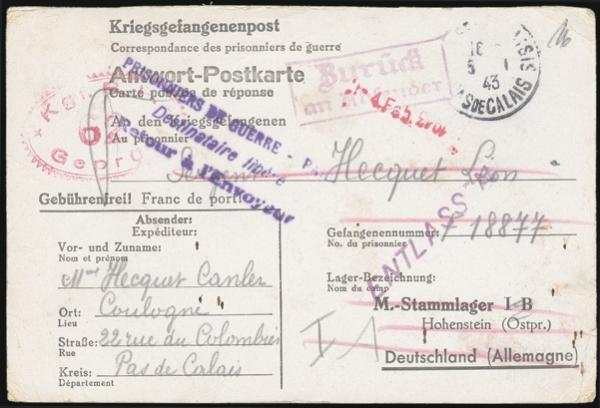 Kriegsgefangenenpost
Correspondance des prisonniers de guerre
Antwort-Postkarte
Carte postale de réponse
An den Kriegsgefangenen
Au prisonnier
Hecquet Léon
Gebührenfrei! Franc de port!
Absender:
Expéditeur:
Vor- und Zuname:
Nom et prénom
Mme Hecquet Canler
Ort: Coulogne
Lieu
Straße: 22 rue du Colombier
Rue
Kreis: Pas de Calais
Département
Gefangenennummer: 18877
No. du prisonnier
Lager-Bezeichnung:
Nom du camp
M.-Stammlager I B
Hohenstein (Ostpr.)
Deutschland (Allemagne)
PRISONNIERS DE GUERRE -
Destinataire libéré
Retour à l'Envoyeur
Zurück
an Absender
ENTLASSEN
16
5 1
43
PAS DE CALAIS
Geprü
I